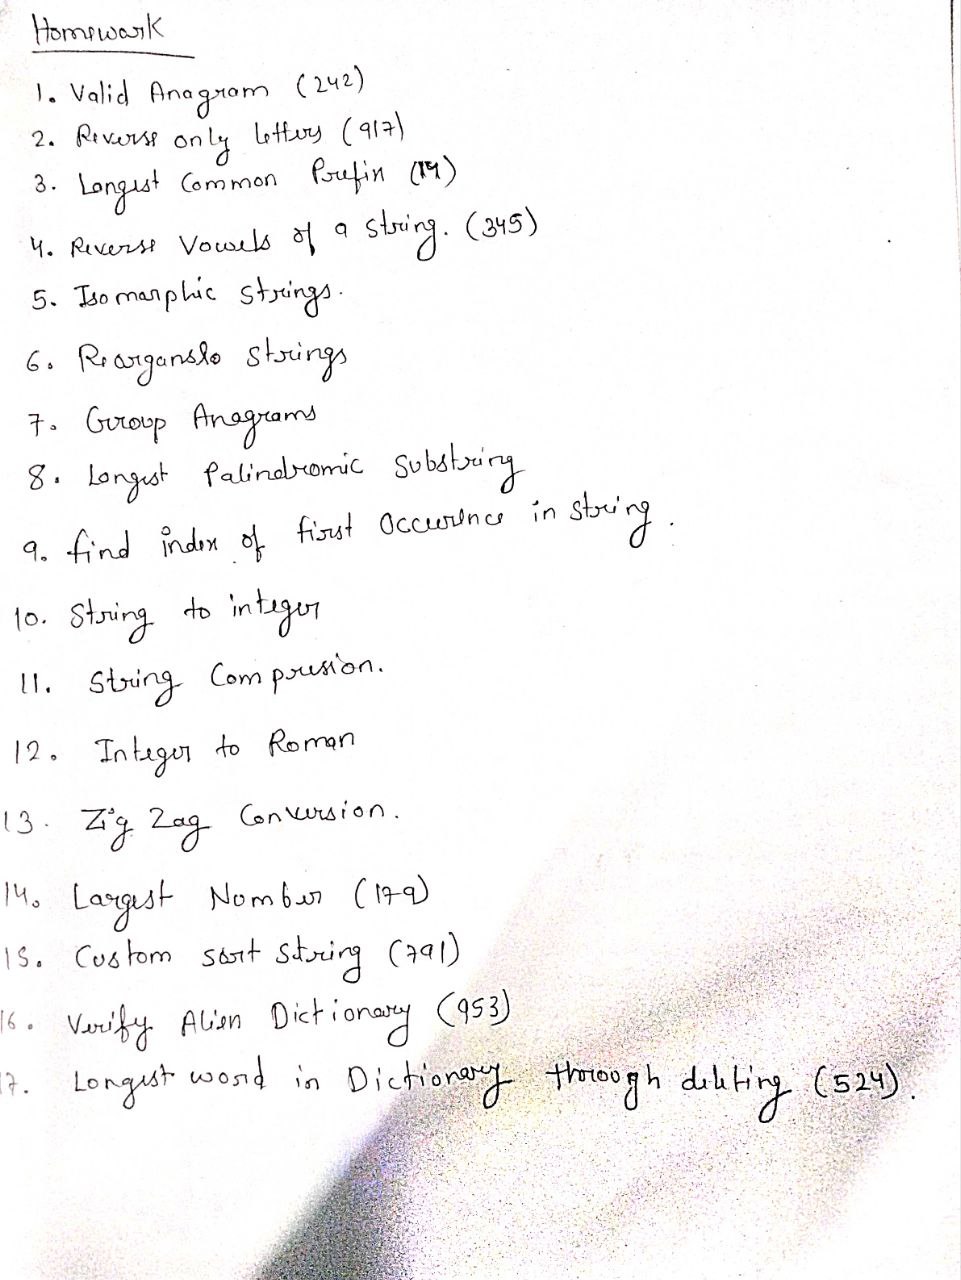 Homework
1. Valid Anagram (242)
2. Reverse only letters (917)
3. Longest Common Prefix (14)
4. Reverse Vowels of a string. (345)
5. Isomorphic strings.
6. strings
7. Group Anagrams
8. Longest Palindromic Substring
9. find index of first Occurence in string.
10. String to integer
11. String Compresion.
12. Integer to Roman
13. Zig Zag Conversion.
14. Largest Number (179)
15. Custom sort String (791)
16. Verify Alien Dictionary (953)
17. Longest word in Dictionary through deleting (524).